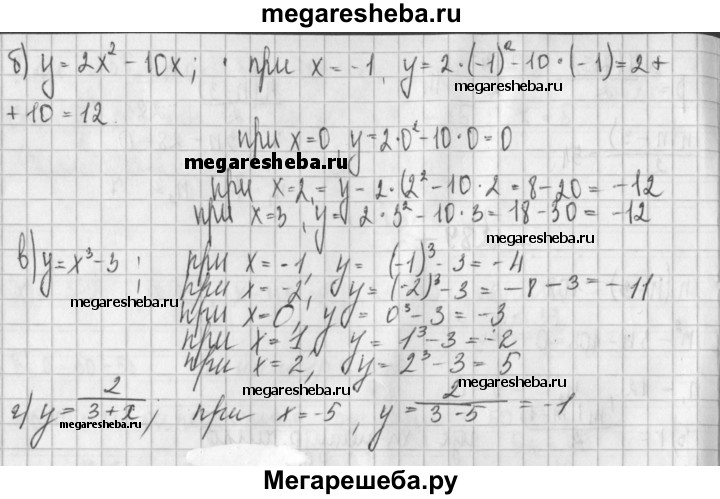 megaresheba.ru
б) y = 2x² - 10x; при x = -1, y = 2·(-1)² - 10·(-1) = 2 +
megaresheba.ru
+ 10 = 12
при x = 0, y = 2·0² - 10·0 = 0
megaresheba.ru
при x = 2, = y - 2·(2² - 10·2 = 8 - 20 = -12
при x = 3, y = 2·3² - 10·3 = 18 - 30 = -12
megaresheba.ru
в) y = x³ - 3; при x = -1, y = (-1)³ - 3 = -4
при x = -2, y = (-2)³ - 3 = -8 - 3 = -11
при x = 0, y = 0³ - 3 = -3
при x = 1, y = 1³ - 3 = -2
при x = 2, y = 2³ - 3 = 5
г) y = 2/(3 + x); при x = -5, y = 2/(3 - 5) = -1
megaresheba.ru
megaresheba.ru
Мегарешеба.ру